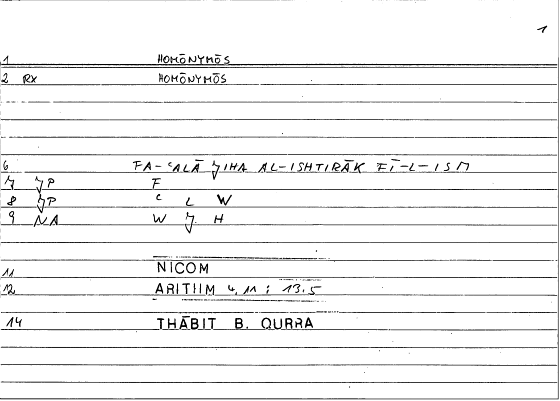 1
1 HOMŌNYMŌS
2 RX HOMŌNYMŌS
6 FA-ʿALĀ JIHA AL-ISHTIRĀK FĪ-L-ISM
7 JP F
8 JP ʿ L W
9 NA W J H
11 NICOM
12 ARITHM 4,11 ; 13.5
14 THĀBIT B. QURRA